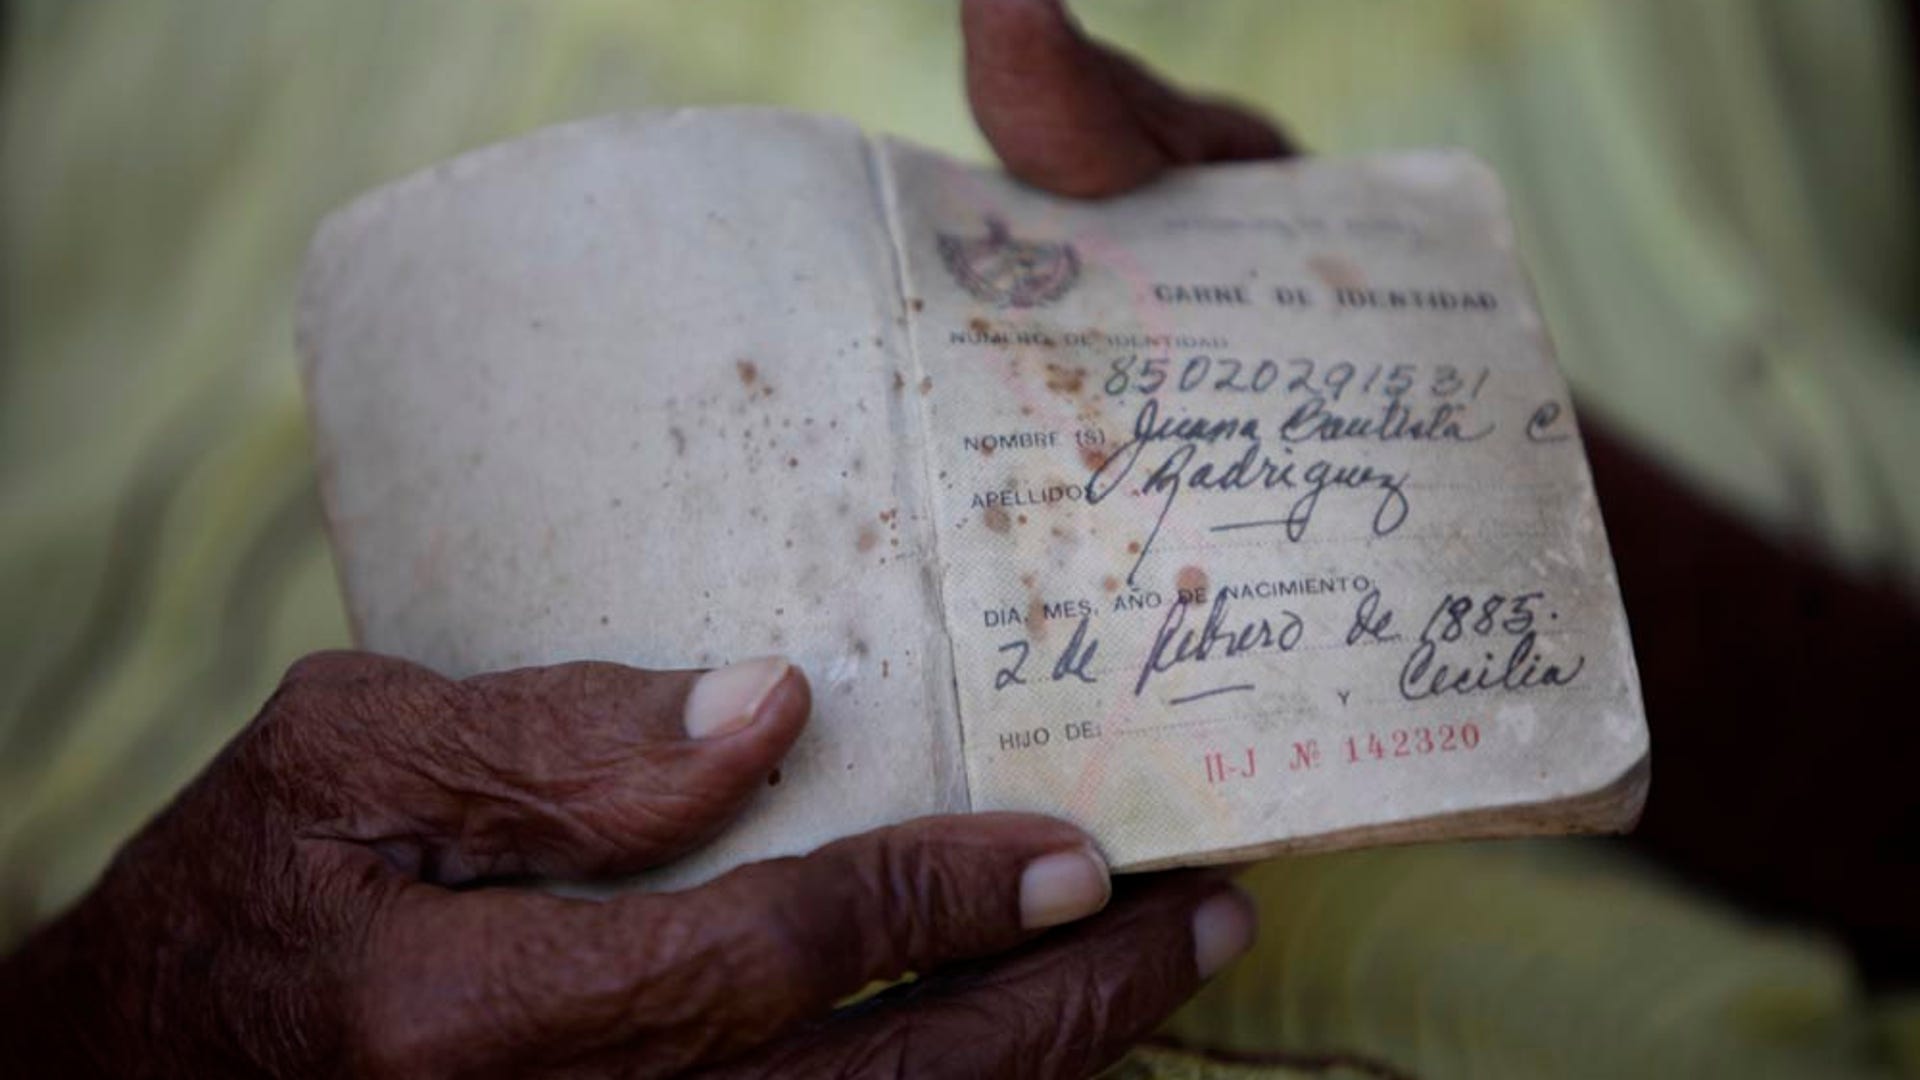 CARNE DE IDENTIDAD
NUMERO DE IDENTIDAD
85020291531
NOMBRE (S) Juana Bautista C
APELLIDOS Rodriguez
DIA, MES, AÑO DE NACIMIENTO:
2 de Febrero de 1885.
HIJO DE: Y Cecilia
II-J № 142320